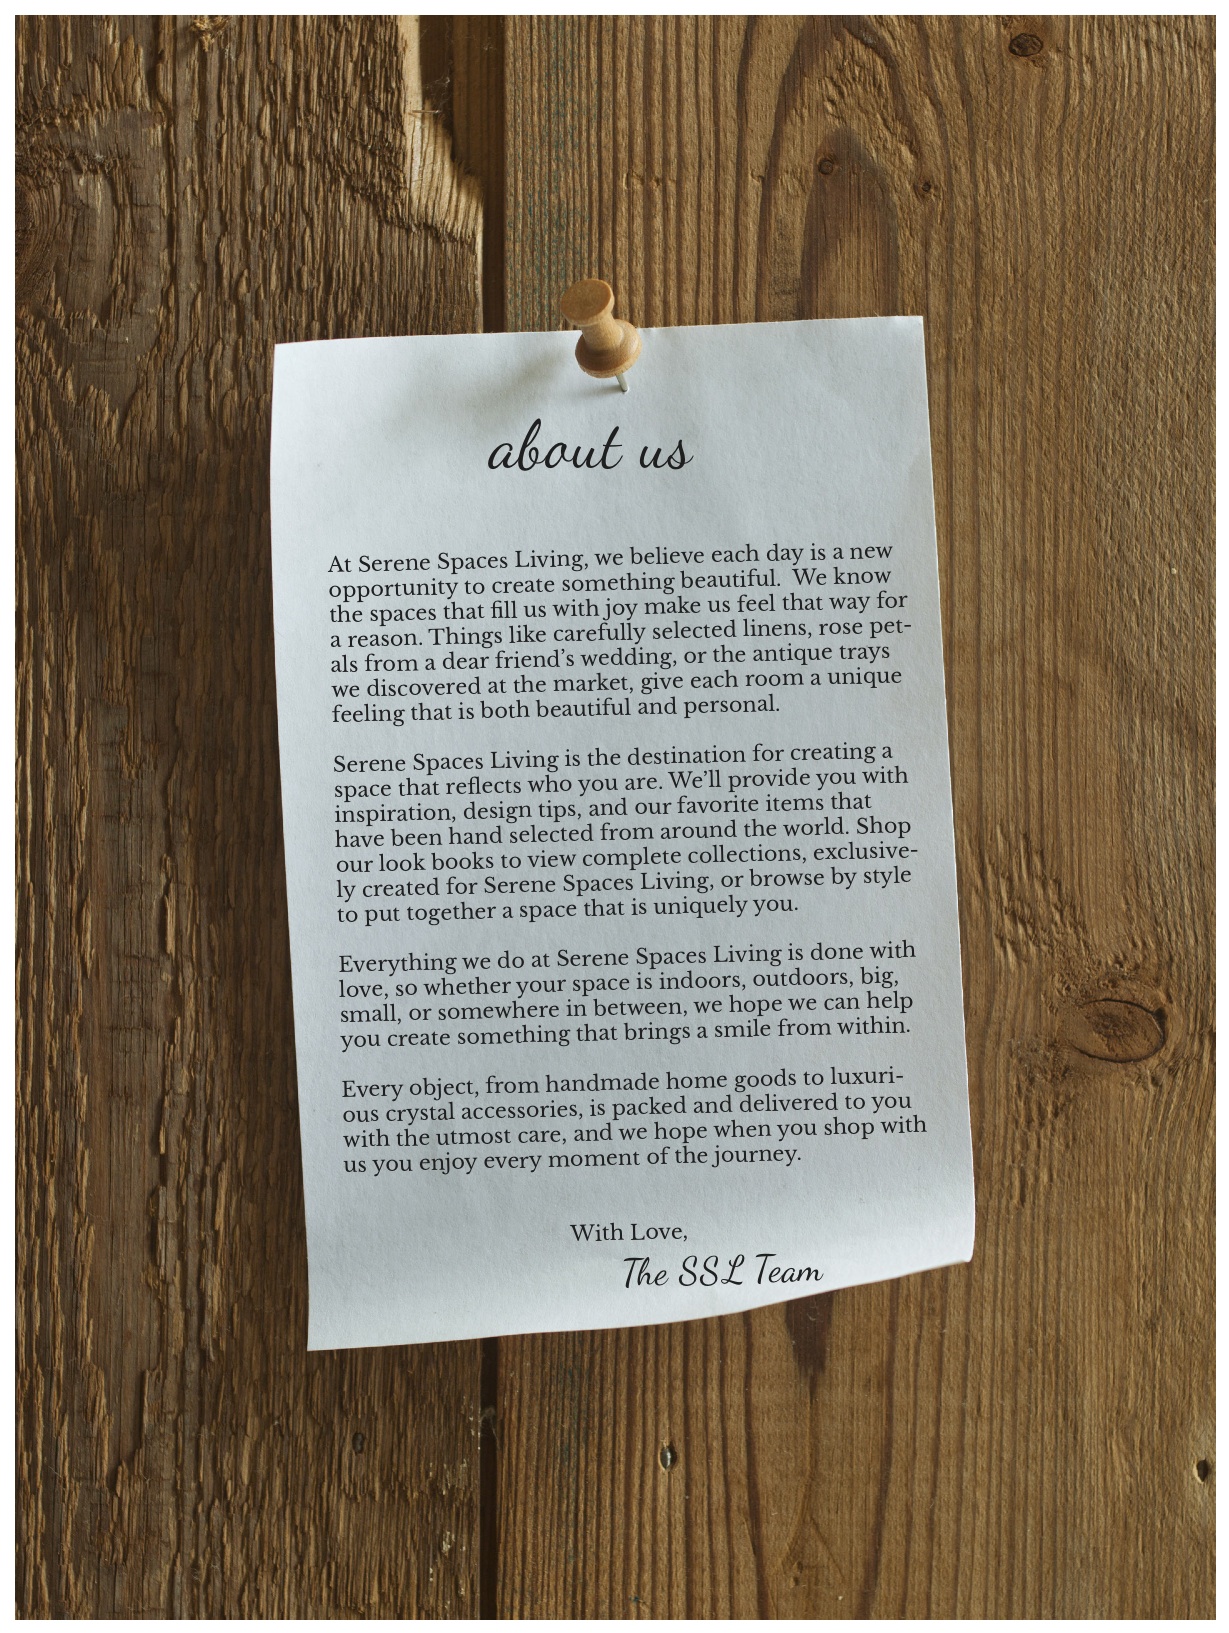 about us
At Serene Spaces Living, we believe each day is a new
opportunity to create something beautiful.  We know
the spaces that fill us with joy make us feel that way for
a reason. Things like carefully selected linens, rose pet-
als from a dear friend's wedding, or the antique trays
we discovered at the market, give each room a unique
feeling that is both beautiful and personal.
Serene Spaces Living is the destination for creating a
space that reflects who you are. We'll provide you with
inspiration, design tips, and our favorite items that
have been hand selected from around the world. Shop
our look books to view complete collections, exclusive-
ly created for Serene Spaces Living, or browse by style
to put together a space that is uniquely you.
Everything we do at Serene Spaces Living is done with
love, so whether your space is indoors, outdoors, big,
small, or somewhere in between, we hope we can help
you create something that brings a smile from within.
Every object, from handmade home goods to luxuri-
ous crystal accessories, is packed and delivered to you
with the utmost care, and we hope when you shop with
us you enjoy every moment of the journey.
With Love,
The SSL Team